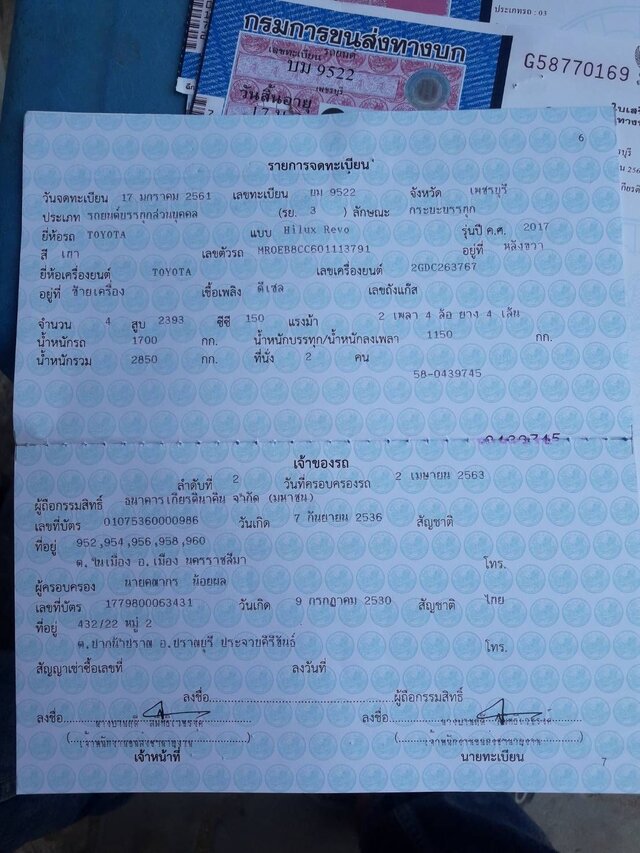 ประเภทรถ : 03
กรมการขนส่งทางบก
รถยนต์
เลขทะเบียน
บม 9522
เพชรบุรี
วันสิ้นอายุ
G58770169
6
รายการจดทะเบียน
วันจดทะเบียน 17 มกราคม 2561 เลขทะเบียน บม 9522 จังหวัด เพชรบุรี
ประเภท รถยนต์บรรทุกส่วนบุคคล (รย. 3 ) ลักษณะ กระบะบรรทุก
ยี่ห้อรถ TOYOTA แบบ Hilux Revo รุ่นปี ค.ศ. 2017
สี เทา เลขตัวรถ MR0EB8CC601113791 อยู่ที่ หลังขวา
ยี่ห้อเครื่องยนต์ TOYOTA เลขเครื่องยนต์ 2GDC263767
อยู่ที่ ซ้ายเครื่อง เชื้อเพลิง ดีเซล เลขถังแก๊ส
จำนวน 4 สูบ 2393 ซีซี 150 แรงม้า 2 เพลา 4 ล้อ ยาง 4 เส้น
น้ำหนักรถ 1700 กก. น้ำหนักบรรทุก/น้ำหนักลงเพลา 1150 กก.
น้ำหนักรวม 2850 กก. ที่นั่ง 2 คน
58-0439745
เจ้าของรถ
ลำดับที่ 2 วันที่ครอบครองรถ 2 เมษายน 2563
ผู้ถือกรรมสิทธิ์ ธนาคารเกียรตินาคิน จำกัด (มหาชน)
เลขที่บัตร 01075360000986 วันเกิด 7 กันยายน 2536 สัญชาติ
ที่อยู่ 952,954,956,958,960
ต.ในเมือง อ.เมือง นครราชสีมา โทร.
ผู้ครอบครอง นายคณากร น้อยผล
เลขที่บัตร 1779800063431 วันเกิด 9 กรกฎาคม 2530 สัญชาติ ไทย
ที่อยู่ 432/22 หมู่ 2
ต.ปากน้ำปราณ อ.ปราณบุรี ประจวบคีรีขันธ์ โทร.
สัญญาเช่าซื้อเลขที่ ลงวันที่
ลงชื่อ ผู้ถือกรรมสิทธิ์
ลงชื่อ ลงชื่อ
เจ้าหน้าที่ นายทะเบียน
7